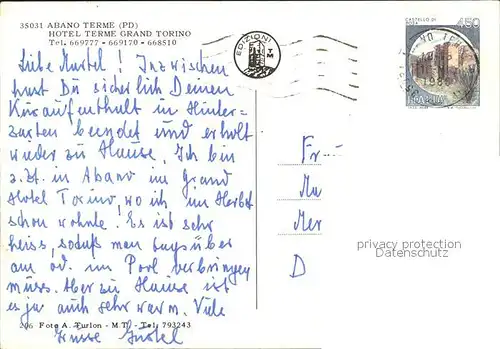 35031 ABANO TERME (PD)
HOTEL TERME GRAND TORINO
Tel. 669777 - 669170 - 668510
EDIZIONI
TM
CASTELLO DI
450
ITALIA
Liebe Mustel! Inzwischen
hast Du sicherlich Deinen
Kuraufenthalt in Hinter-
zarten beendet und erholt
wieder zu Hause. Ich bin
z.Zt. in Abano im Grand
Hotel Torino, wo ich im Herbst
schon wohnte. Es ist sehr
heiss, sodaß man tagsüber
am od. im Pool verbringen
muss. Aber zu Hause ist
es ja auch sehr warm. Viele
206 Foto A. Turlon - M.T. - Tel. 793243
Grüsse Gustel
Fr
Mu
Mer
D
privacy protection
Datenschutz